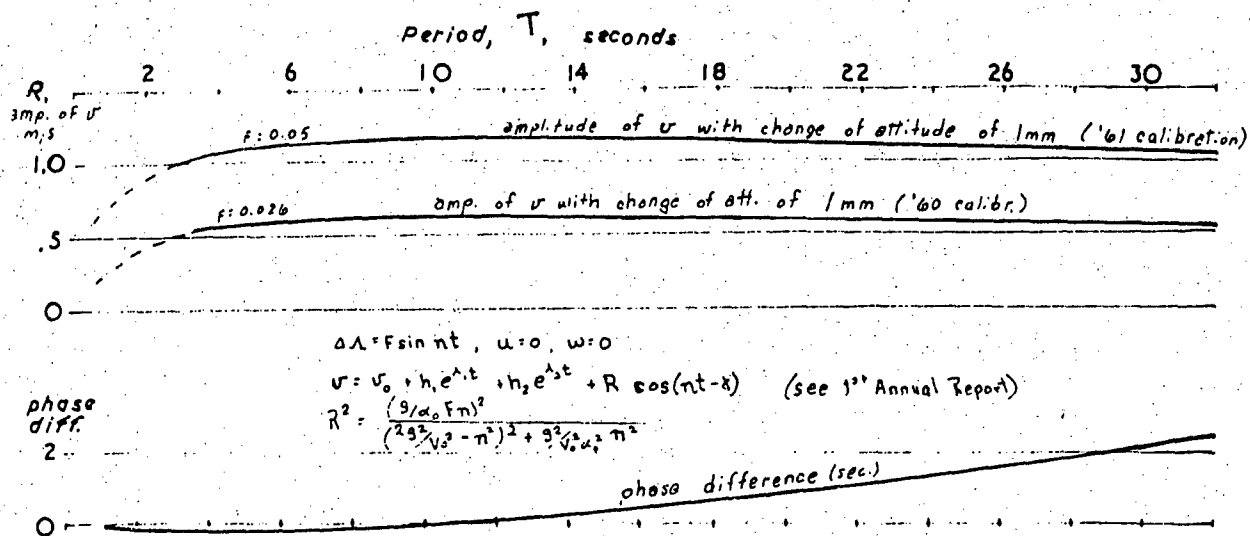 Period, T, seconds
2 6 10 14 18 22 26 30
R,
amp. of v
m/s
F: 0.05
amplitude of v with change of attitude of 1mm ('61 calibration)
1.0
F: 0.026
amp. of v with change of att. of 1mm ('60 calibr.)
.5
0
ΔΛ = F sin nt , u = 0, w = 0
v = v₀ + h₁e^λ₁t + h₂e^λ₂t + R cos(nt-γ) (see 1st Annual Report)
R² = (g/α₀ Fn)² / ((2g²/V₀² - n²)² + g²/V₀²α₀² n²)
phase
diff.
2
phase difference (sec.)
0